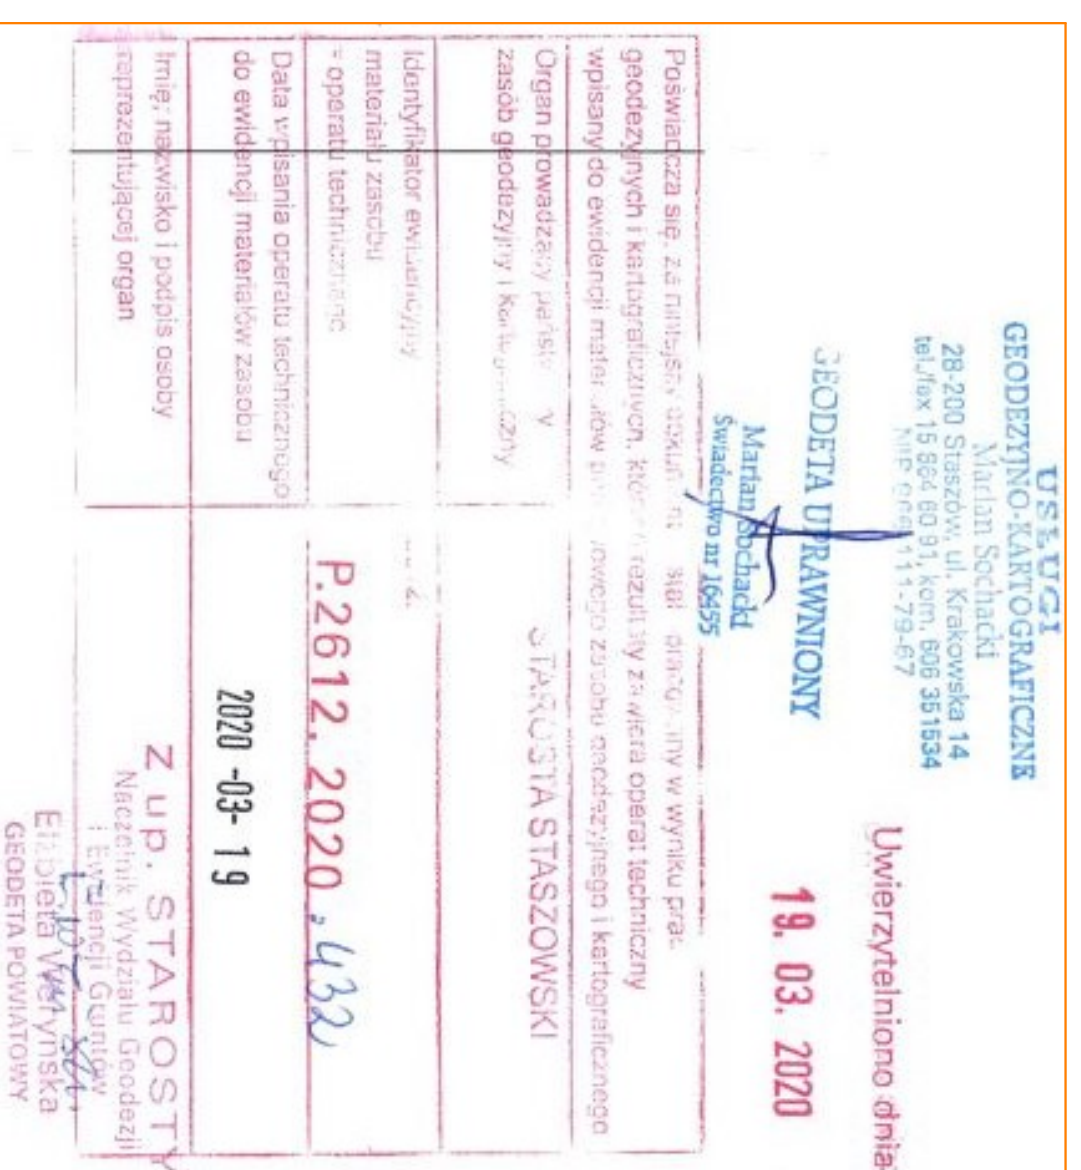 USŁUGI
GEODEZYJNO-KARTOGRAFICZNE
Marian Sochacki
28-200 Staszów, ul. Krakowska 14
tel./fax 15 864 60 91, kom. 606 351534
NIP 866-111-79-67
Uwierzytelniono dnia
19. 03. 2020
GEODETA UPRAWNIONY
Marian Sochacki
Świadectwo nr 16455
Poświadcza się, że niniejszy dokument został opracowany w wyniku prac
geodezyjnych i kartograficznych, których rezultaty zawiera operat techniczny
wpisany do ewidencji materiałów państwowego zasobu geodezyjnego i kartograficznego
Organ prowadzący państwowy
zasób geodezyjny i kartograficzny
STAROSTA STASZOWSKI
Identyfikator ewidencyjny
materiału zasobu
- operatu technicznego
P.2612. 2020 . 432
Data wpisania operatu technicznego
do ewidencji materiałów zasobu
2020 -03- 19
Imię, nazwisko i podpis osoby
reprezentującej organ
Z up. STAROSTY
Naczelnik Wydziału Geodezji
i Ewidencji Gruntów
Elżbieta
GEODETA POWIATOWY